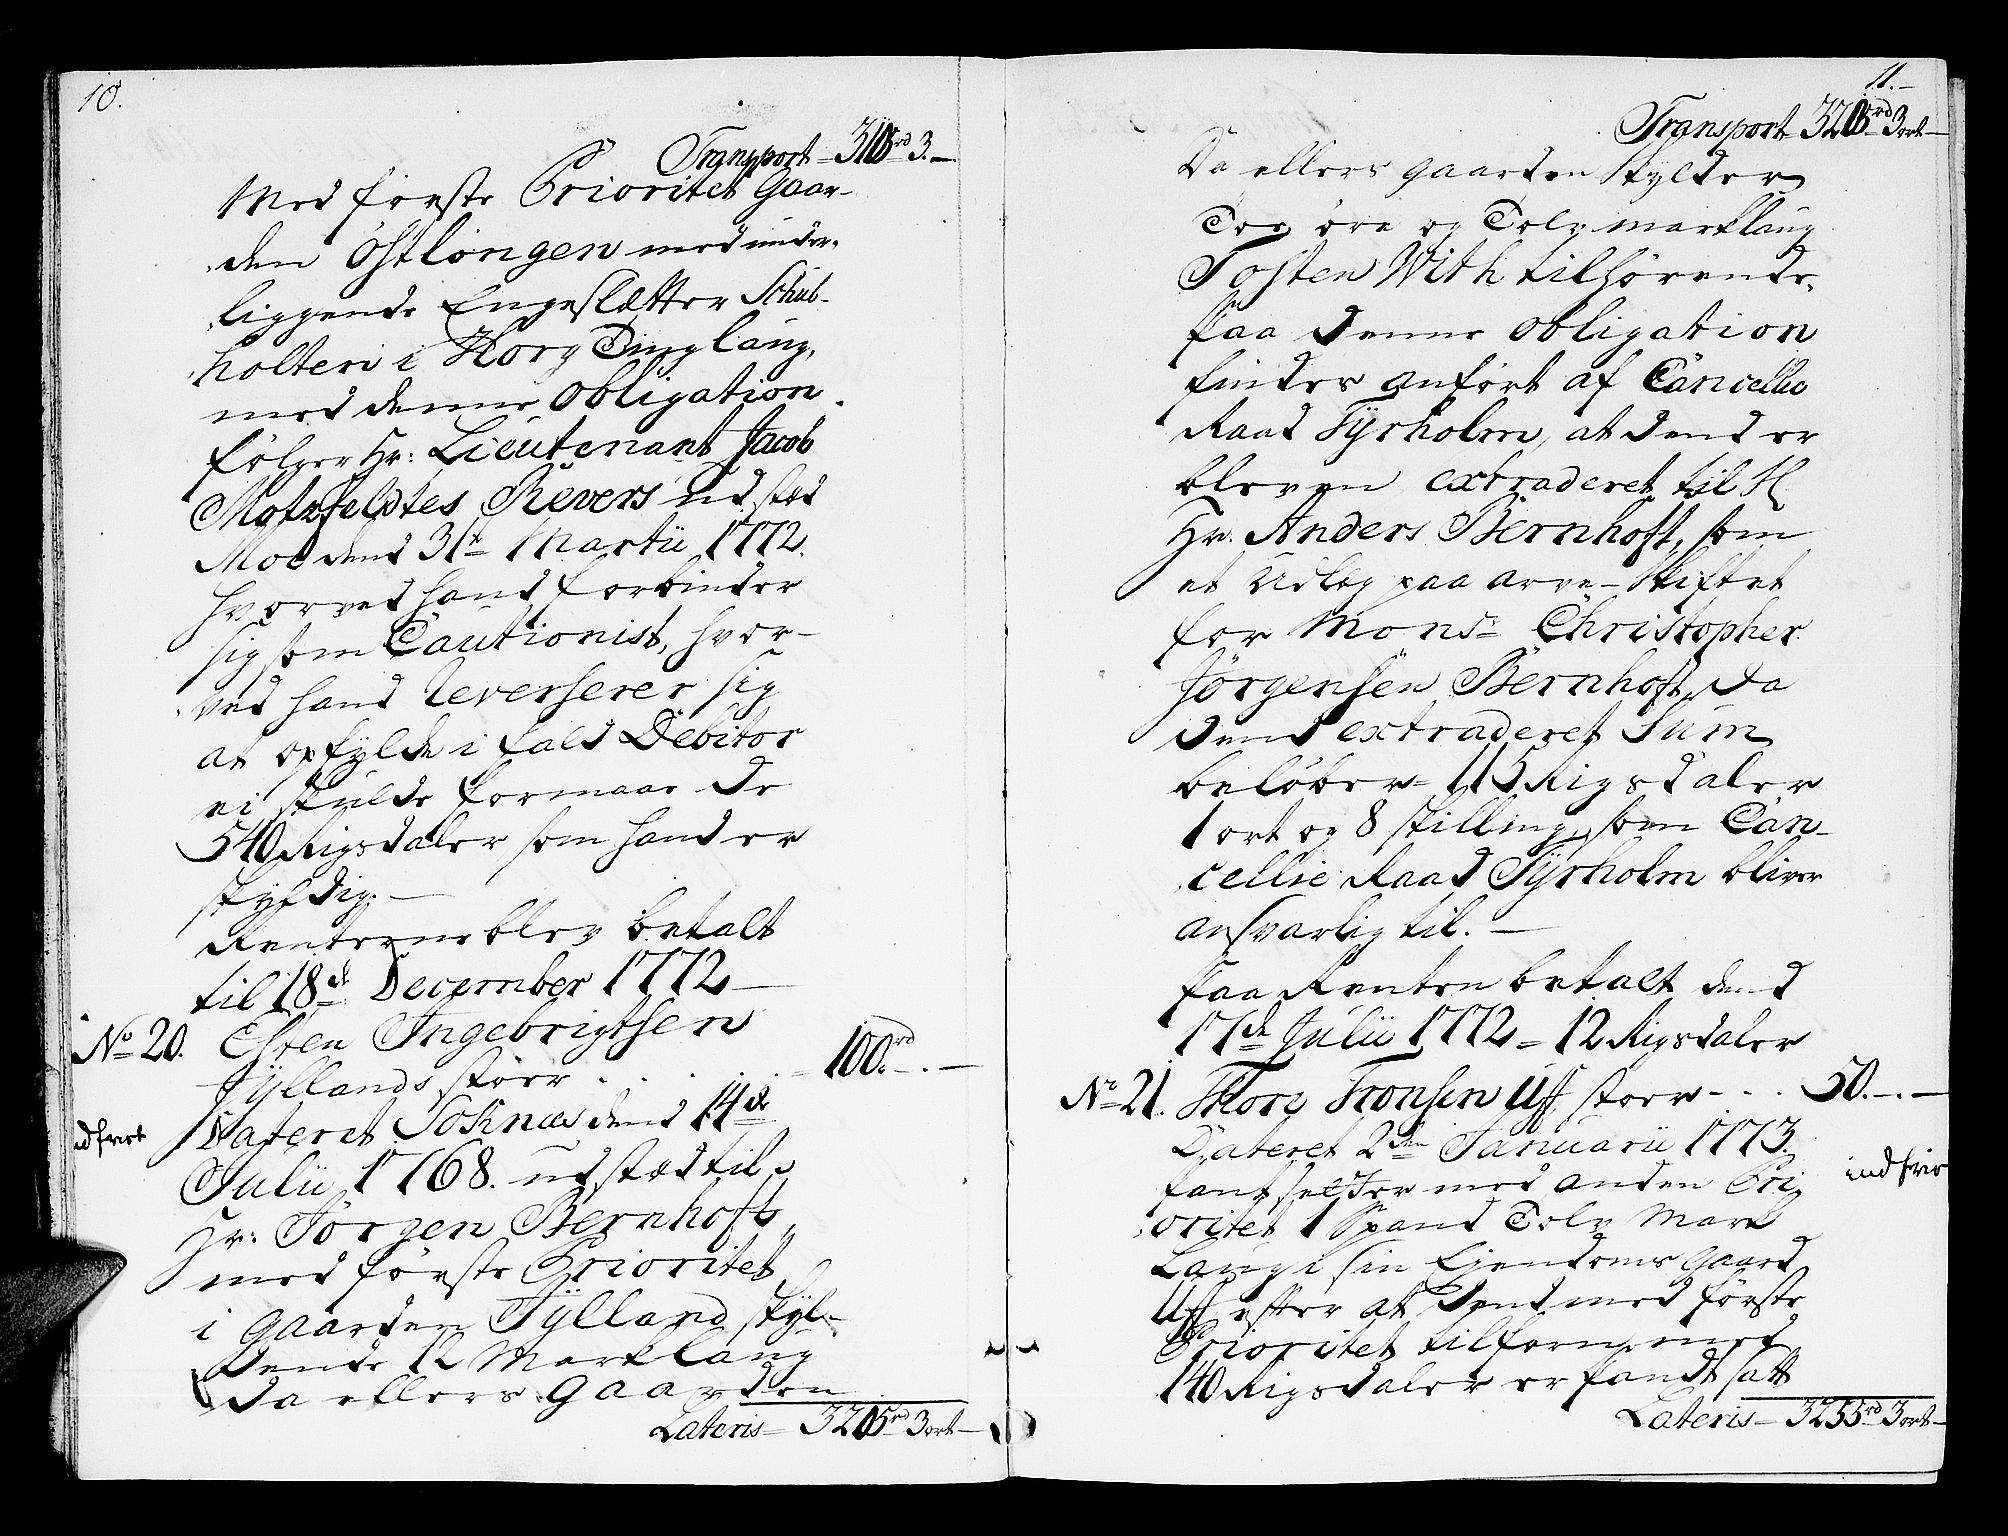 10.
Transport - 3105 rd 3. -
Med første Prioritet Gaar-
den Østlongen med under-
liggende Engeslætter Schub-
holten i Horg Dinglaug,
med denne Obligation
følger Hr: Lieutenant Jacob
Motzfeldtes Revers udstæd
Moe dend 31te Martii 1772.
hvorved hand forbinder
sig som Cautionist, hvor-
ved hand reverserer sig
at opfylde i fald Debitor
ei skulde formaae de
540 Rigsdaler som hand er
skyldig. -
Renterne blev betalt
til 18de December 1772 -
No 20. Esten Ingebrigtsen
Jyllands stoer . . . . . = 100. rd - . -
indfriet
Dateret Soknæs dend 14de
Julii 1768. udstæd til
Hr: Jörgen Bernhoft
med første Prioritet
i Gaarden Jylland skyl-
dende 12 Marklaug
da ellers Gaarden
Lateris - 3205 rd 3 ort -
11. -
Transport 3205 rd 3 ort -
Da ellers gaarden skylder
Toe øre og Tolv marklaug
Tosten With tilhørende.
Paa denne Obligation
findes anført af Cancellie
Raad Tyrholm, at dend er
bleven extraderet til H
Hr. Anders Bernhoft, som
et Udlæg paa arve-Skiftet
for Monsr Christopher
Jörgensen Bernhoft, da
dend extraderet Sum
beløber = 115 Rigsdaler
1 ort og 8 skilling, som Can-
cellie Raad Tyrholm bliver
ansvarlig til. -
Paa Renten betalt dend
17de Julii 1772 = 12 Rigsdaler
No 21. Thore Tronsen Uff stoer - . . . 50. - . -
Dateret 2den Januarii 1773.
indfrie
Pantsetter med anden Pri
oritet 1 Spand Tolv Mark
Laug i sin Eiendoms Gaard
Uff efter at dend med første
Prioritet tilforn med
140 Rigsdaler er Pandtsatt
Lateris - 3255 rd 3 ort -